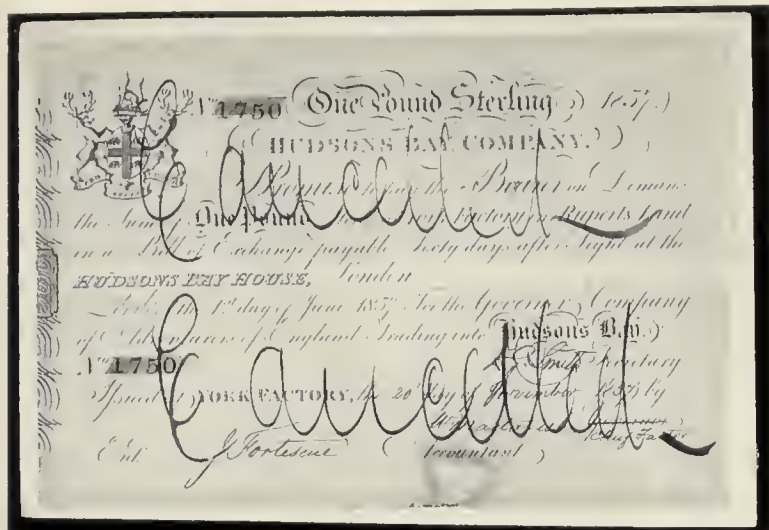 No. 1750 One Pound Sterling 1857.
HUDSONS BAY COMPANY.
Cancelled
Promise to pay the Bearer on Demand
the Sum of One Pound York Factory in Ruperts Land
in a Bill of Exchange payable Sixty days after Sight at the
HUDSONS BAY HOUSE, London
the 1st day of June 1857 For the Governor & Company
of Adventurers of England Trading into Hudsons Bay.
No. 1750
Cancelled
Smith Secretary
Issued at YORK FACTORY, the 20 day of November by
Chief Factor
Ent. J Fortescue Accountant